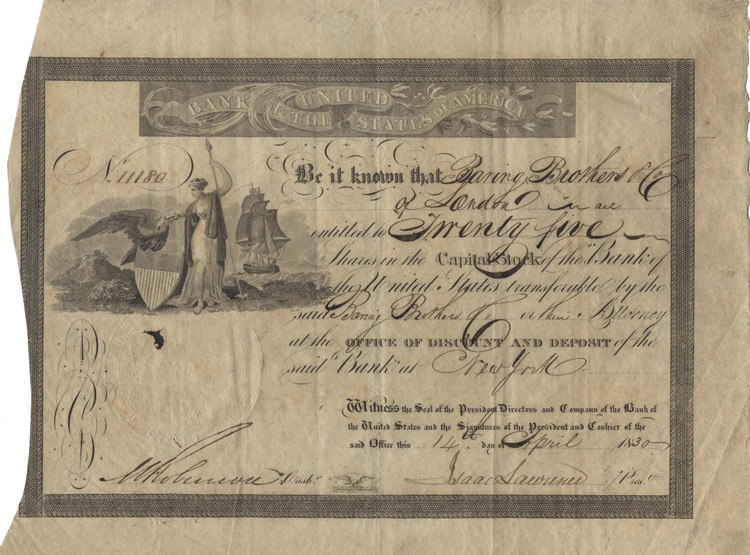 BANK OF THE UNITED STATES OF AMERICA
No. 11180
Be it known that Baring Brothers & Co
of London are
entitled to Twenty five
Shares in the Capital Stock of the "Bank of
the United States" transferable by the
said Baring Brothers & Co or their Attorney
at the OFFICE OF DISCOUNT AND DEPOSIT of the
said "Bank" at New York
Witness the Seal of the President Directors and Company of the Bank of
the United States and the Signatures of the President and Cashier of the
said Office this 14th day of April 1830
Cashr. Isaac Lawrence Presdt.